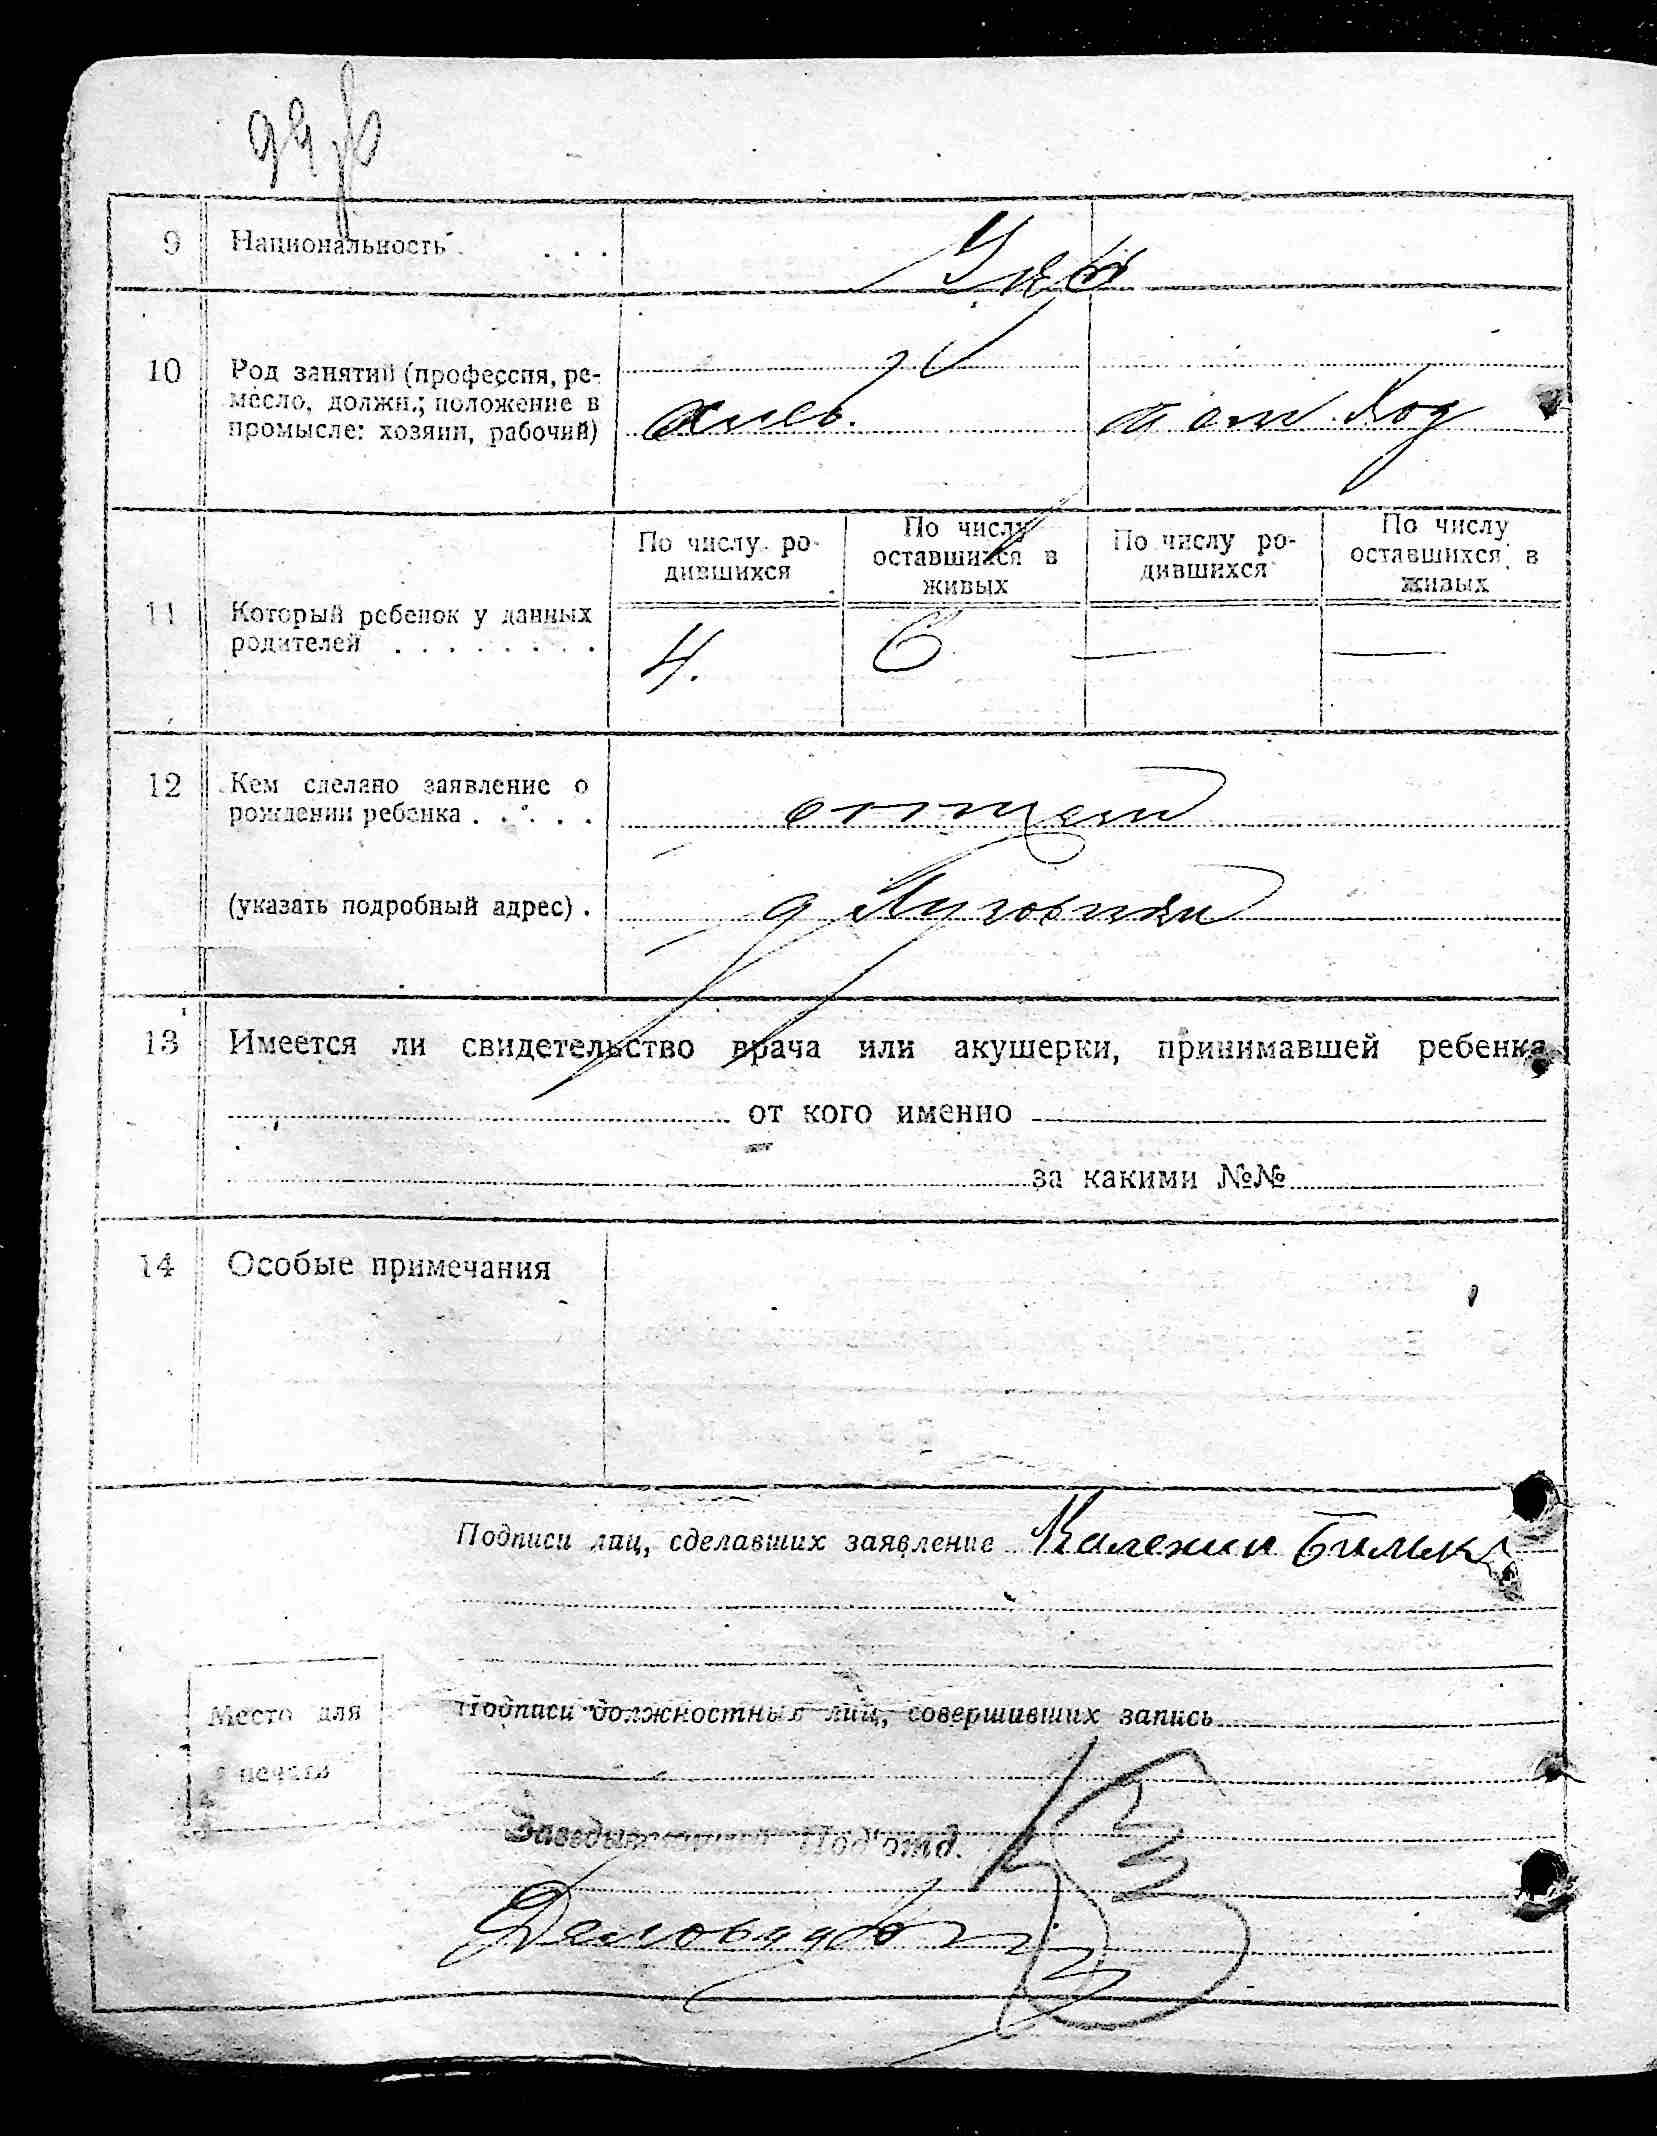 99 об
9 Национальность . . . .
Укр
10 Род занятий (профессия, ре-
месло, должн.; положение в
промысле: хозяин, рабочий)
хлеб.
11 Который ребенок у данных
родителей . . . . . . . .
По числу ро-
дившихся
По числу
оставшихся в
живых
По числу ро-
дившихся
По числу
оставшихся в
живых
4. 6 — —
12 Кем сделано заявление о
рождении ребенка . . . . .
отцем
(указать подробный адрес) .
13 Имеется ли свидетельство врача или акушерки, принимавшей ребенка
от кого именно
за какими №№
14 Особые примечания
Подписи лиц, сделавших заявление
Место для
печати
Подписи должностных лиц, совершивших запись
Заведывающий Под'отд.
Деловод